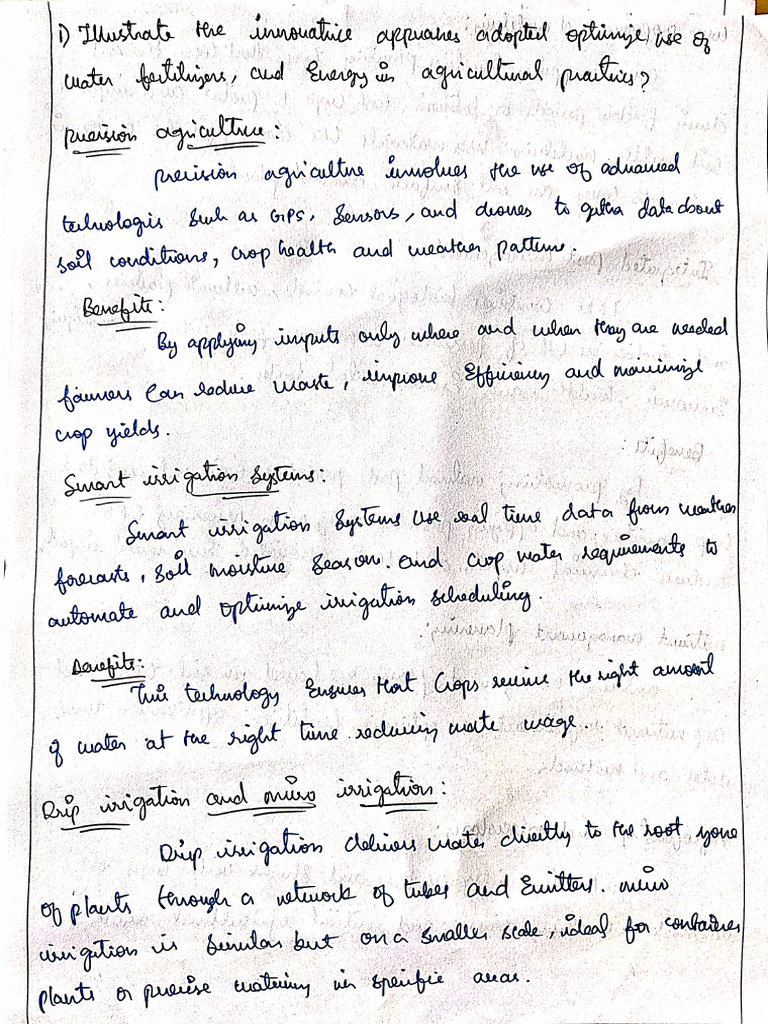 1) Illustrate the innovative appraoches adopted optimize use of
water fertilizers, and Energy in agricultural practices?
precision agriculture:
precision agriculture involves the use of advanced
technologies such as GPS, sensors, and drones to gather data about
soil conditions, crop health and weather patterns.
Benefits:
By applying inputs only where and when they are needed
farmers can reduce waste, improve Efficiency and maximize
crop yields.
Smart irrigation systems:
Smart irrigation systems use real time data from weather
forecasts, soil moisture season. and crop water requirements to
automate and optimize irrigation scheduling.
Benefits:
This technology Ensures that Crops receive the right amount
of water at the right time reducing
Drip irrigation and micro irrigation:
Drip irrigation delivers water directly to the root zone
of plants through a network of tubes and Emitters. micro
irrigation is similar but on a smaller scale, ideal for container
plants or precise watering in specific areas.